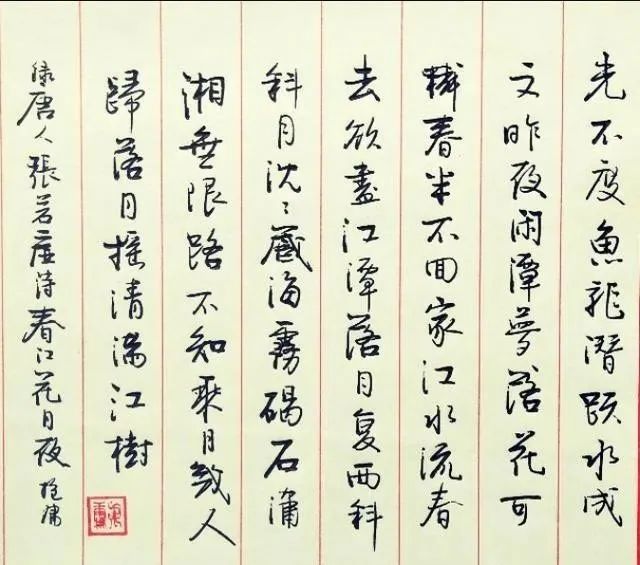 光不度魚龍潛躍水成
文昨夜闲潭夢落花可
憐春半不回家江水流春
去欲盡江潭落月复西斜
斜月沈〻藏海霧碣石瀟
湘無限路不知乘月幾人
歸落月摇情满江樹
録唐人張若虛詩春江花月夜